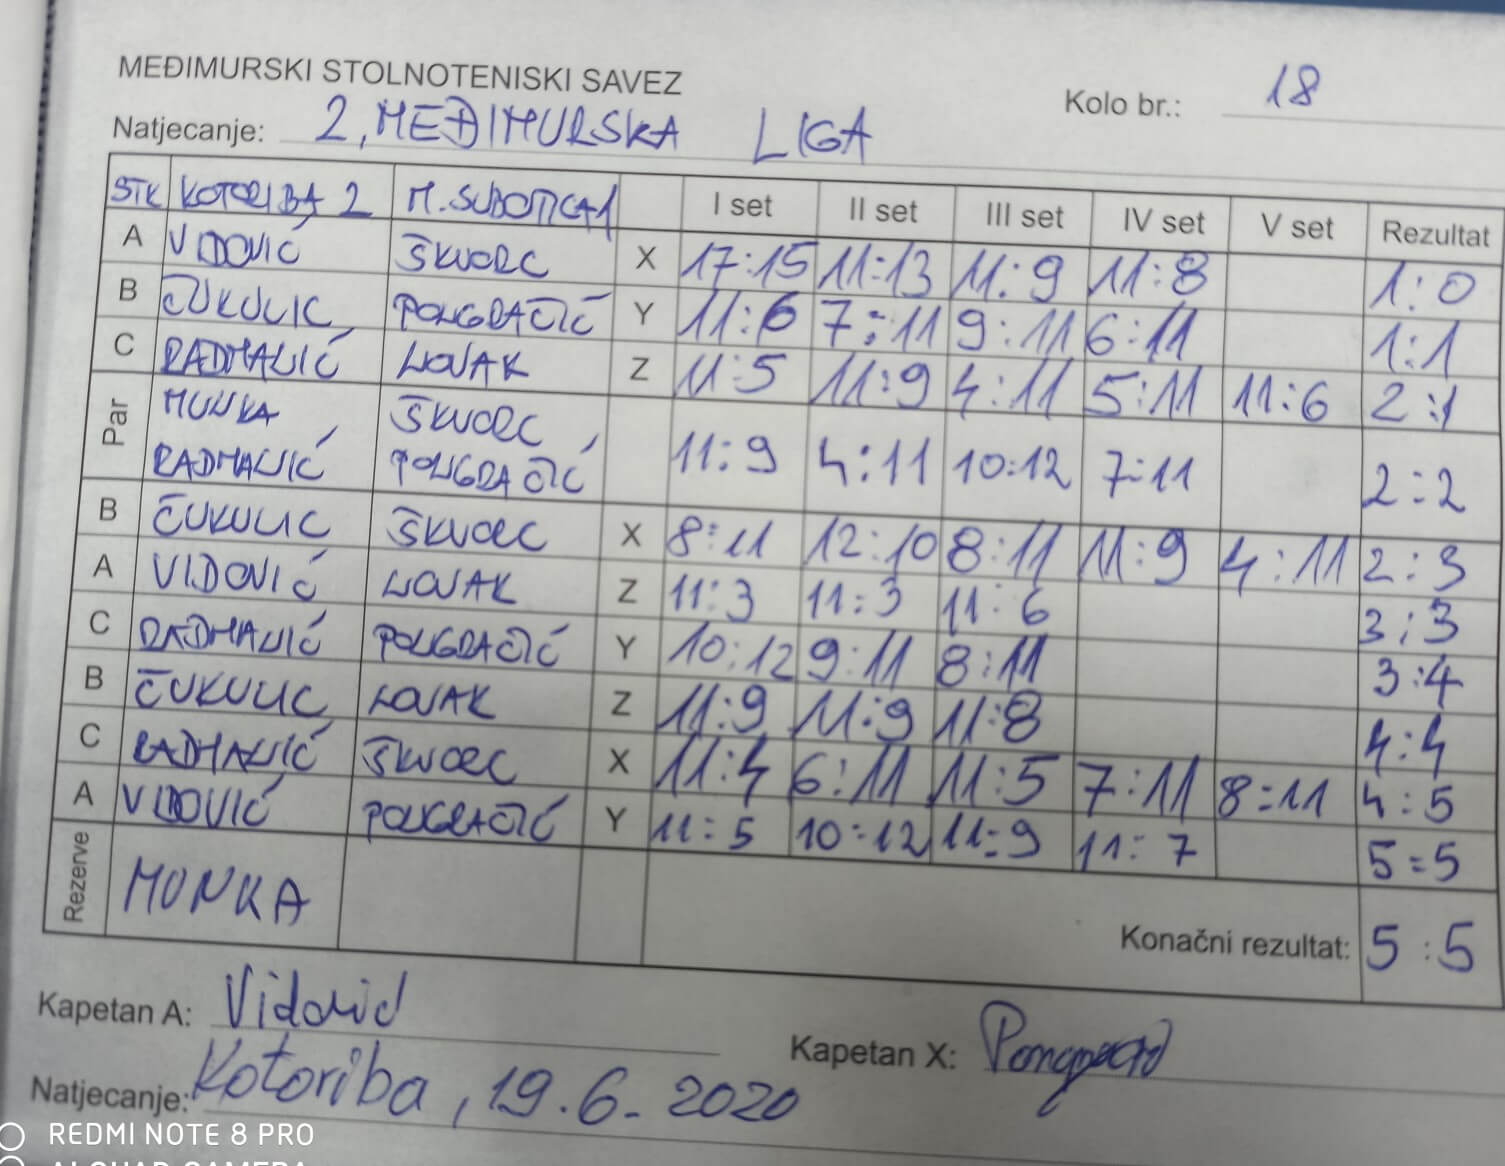 MEĐIMURSKI STOLNOTENISKI SAVEZ
Kolo br.: 18
Natjecanje: 2, MEĐIMURSKA LIGA
STK KOTORIBA 2 M. SUBOTICA 1 I set II set III set IV set V set Rezultat
A VIDOVIĆ ŠKVORC X 17:15 11:13 11:9 11:8 1:0
B ČUKULIC PONGRAČIĆ Y 11:6 7:11 9:11 6:11 1:1
C RADMANIĆ NOVAK Z 11:5 11:9 4:11 5:11 11:6 2:1
Par MUNKA, ŠKVORC,
RADMANIĆ PONGRAČIĆ 11:9 4:11 10:12 7:11 2:2
B ČUKULIC ŠKVORC X 8:11 12:10 8:11 11:9 4:11 2:3
A VIDOVIĆ NOVAK Z 11:3 11:3 11:6 3:3
C RADMANIĆ PONGRAČIĆ Y 10:12 9:11 8:11 3:4
B ČUKULIC NOVAK Z 11:9 11:9 11:8 4:4
C RADMANIĆ ŠKVORC X 11:4 6:11 11:5 7:11 8:11 4:5
A VIDOVIĆ PONGRAČIĆ Y 11:5 10:12 11:9 11:7 5:5
Rezerve MUNKA
Konačni rezultat: 5:5
Kapetan A: Vidović
Kapetan X:
Natjecanje: Kotoriba, 19.6.2020
REDMI NOTE 8 PRO